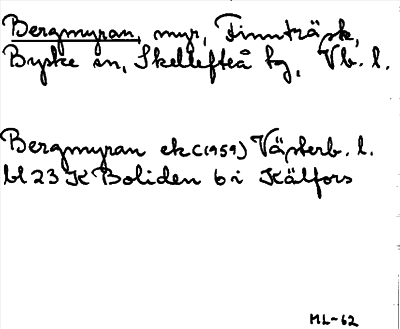 Bergmyran, myr, Finnträsk,
Byske sn, Skellefteå kg, Vb. l.
Bergmyran ek (1959) Västerb. l.
bl 23 K Boliden 6 i Kälfors
ML-62